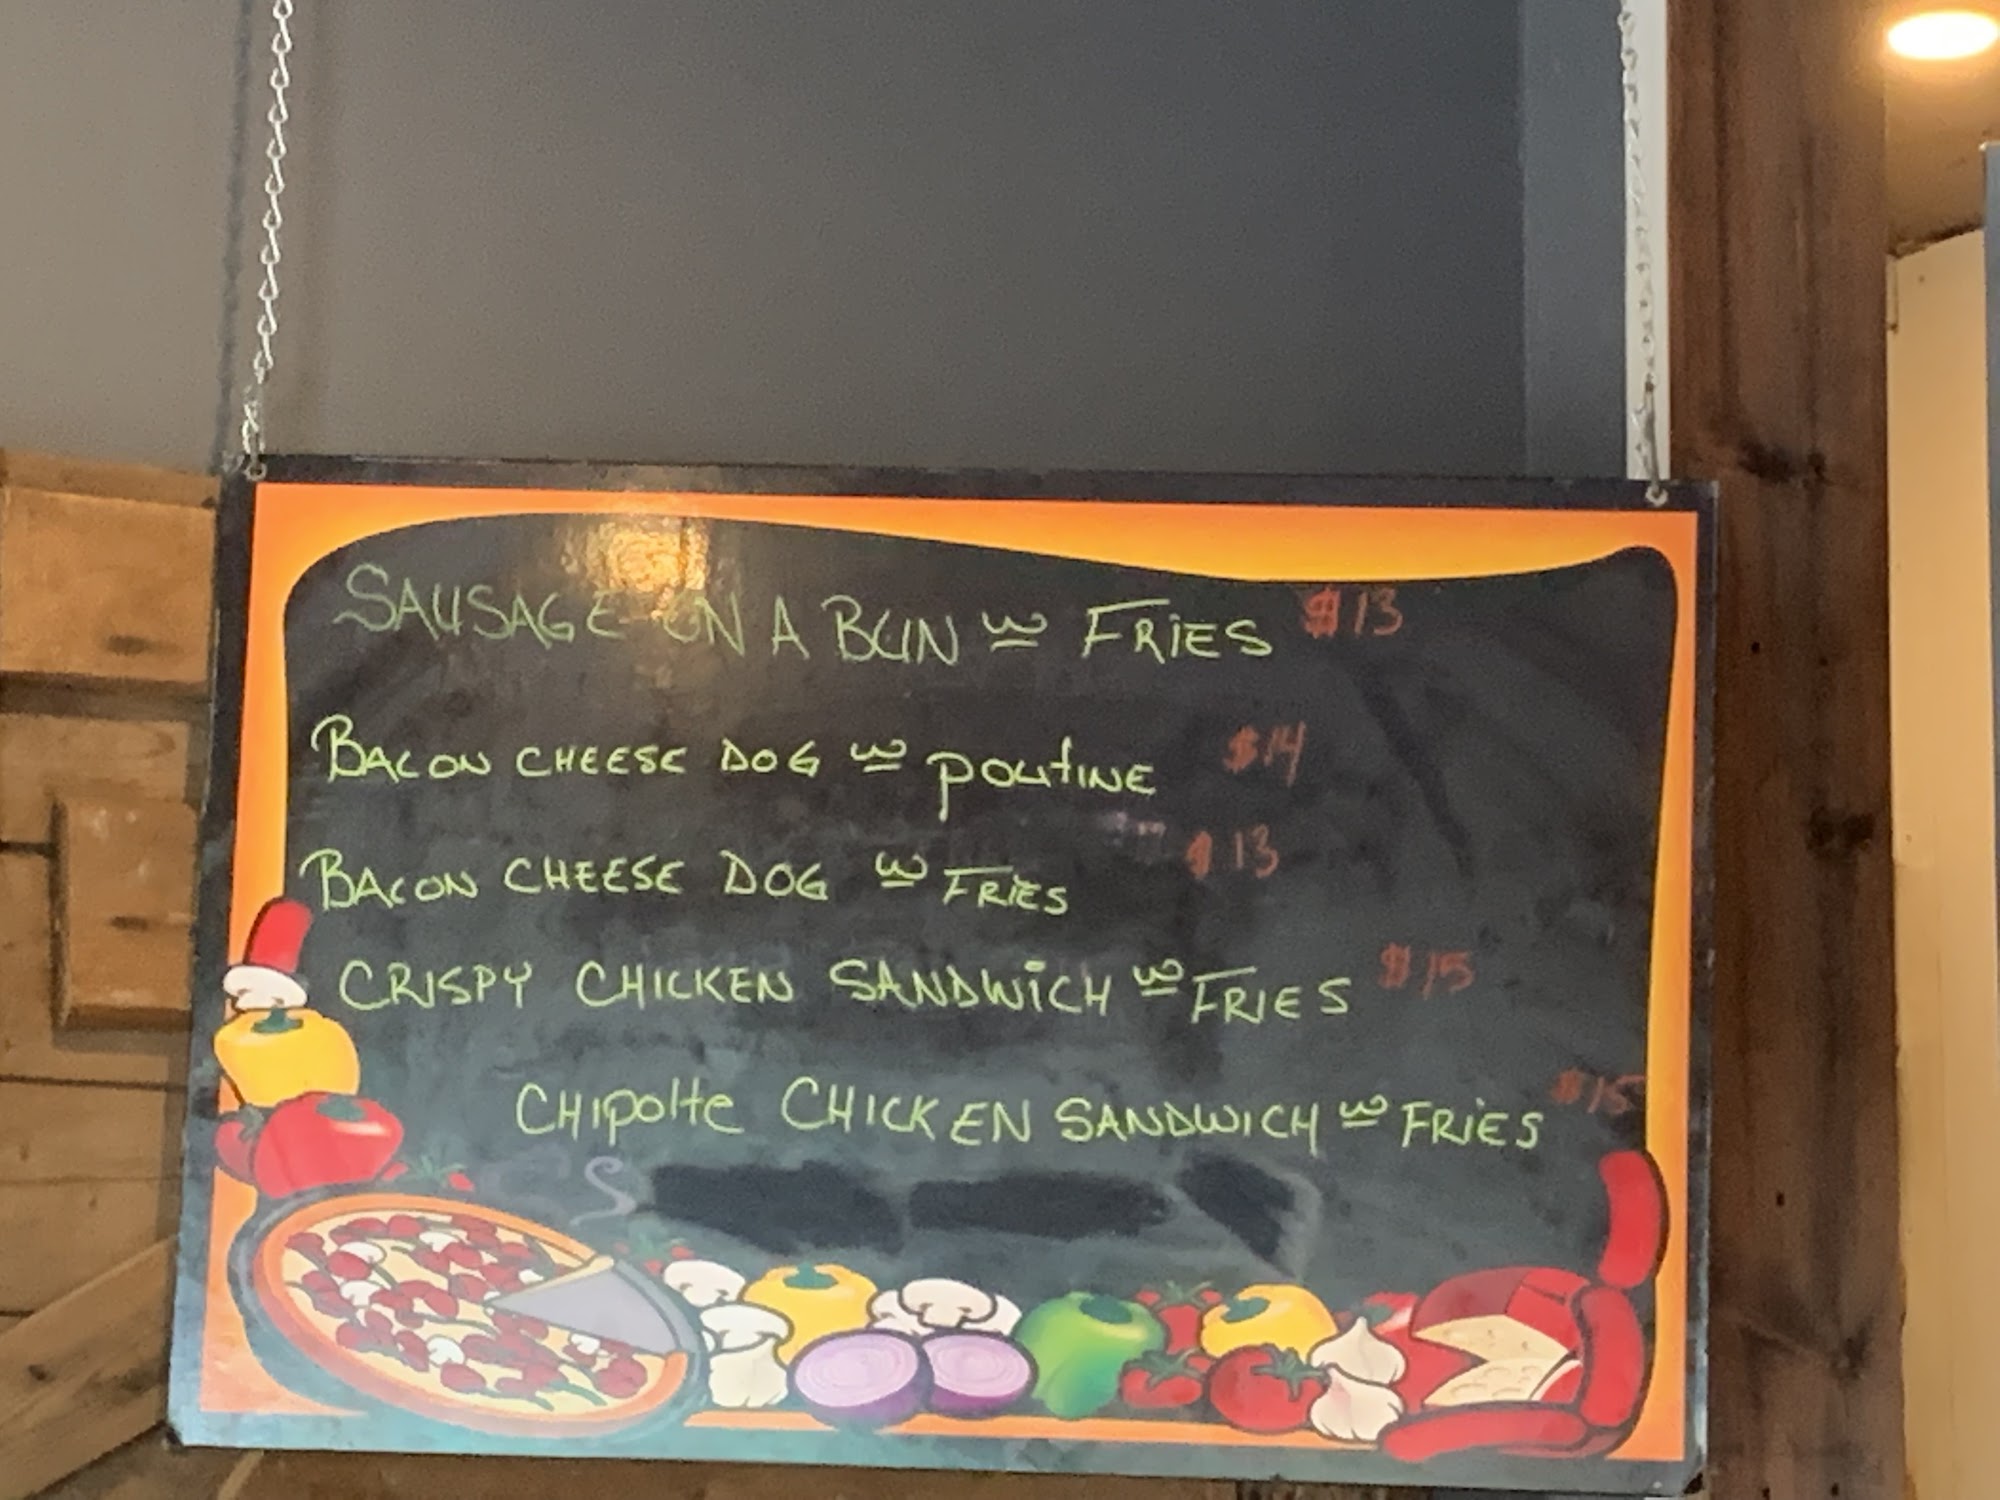 SAUSAGE ON A BUN w FRIES $13
BACON CHEESE DOG w poutINE $14
BACON CHEESE DOG w FRIES $13
CRISPY CHICKEN SANDWICH w FRIES $15
CHIpolte CHICKEN SANDWICH w FRIES $15